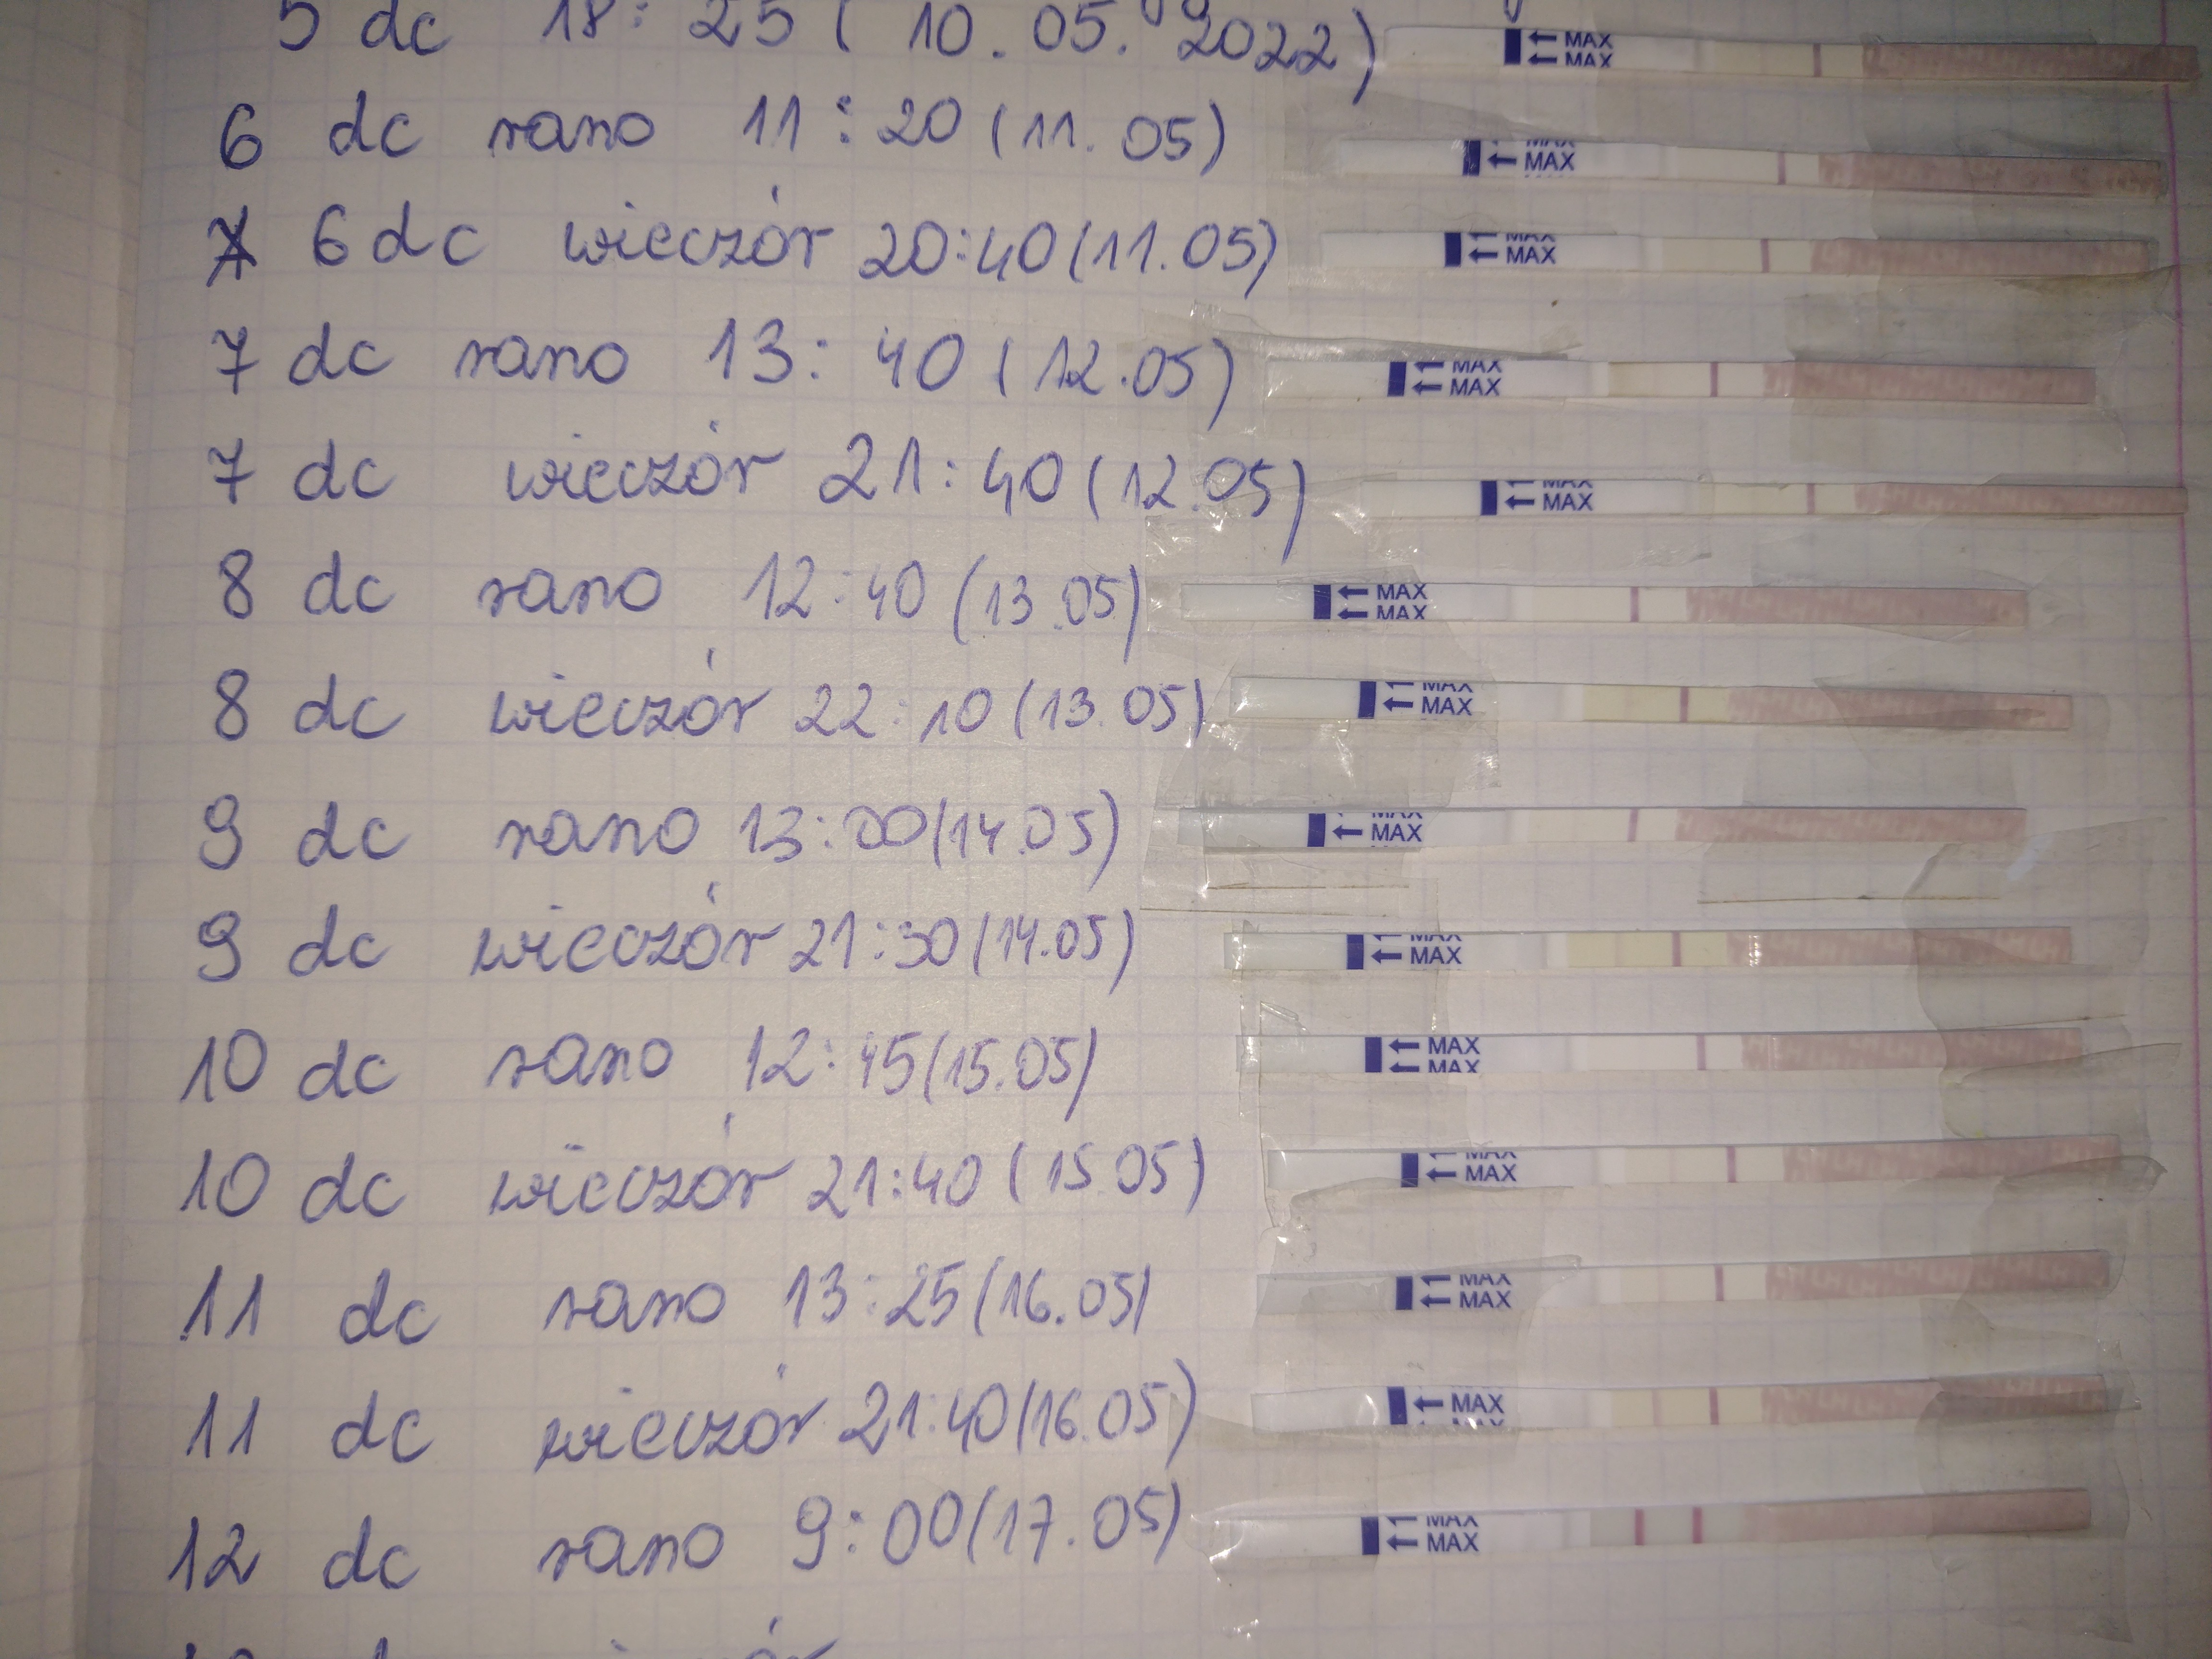 5 dc 18:25 (10.05.2022) MAX MAX
6 dc rano 11:20 (11.05) MAX MAX
6 dc wieczór 20:40 (11.05) MAX MAX
7 dc rano 13:40 (12.05) MAX MAX
7 dc wieczór 21:40 (12.05) MAX MAX
8 dc rano 12:40 (13.05) MAX MAX
8 dc wieczór 22:10 (13.05) MAX MAX
9 dc rano 13:00 (14.05) MAX MAX
9 dc wieczór 21:30 (14.05) MAX MAX
10 dc rano 12:45 (15.05) MAX MAX
10 dc wieczór 21:40 (15.05) MAX MAX
11 dc rano 13:25 (16.05) MAX MAX
11 dc wieczór 21:40 (16.05) MAX
12 dc rano 9:00 (17.05) MAX MAX